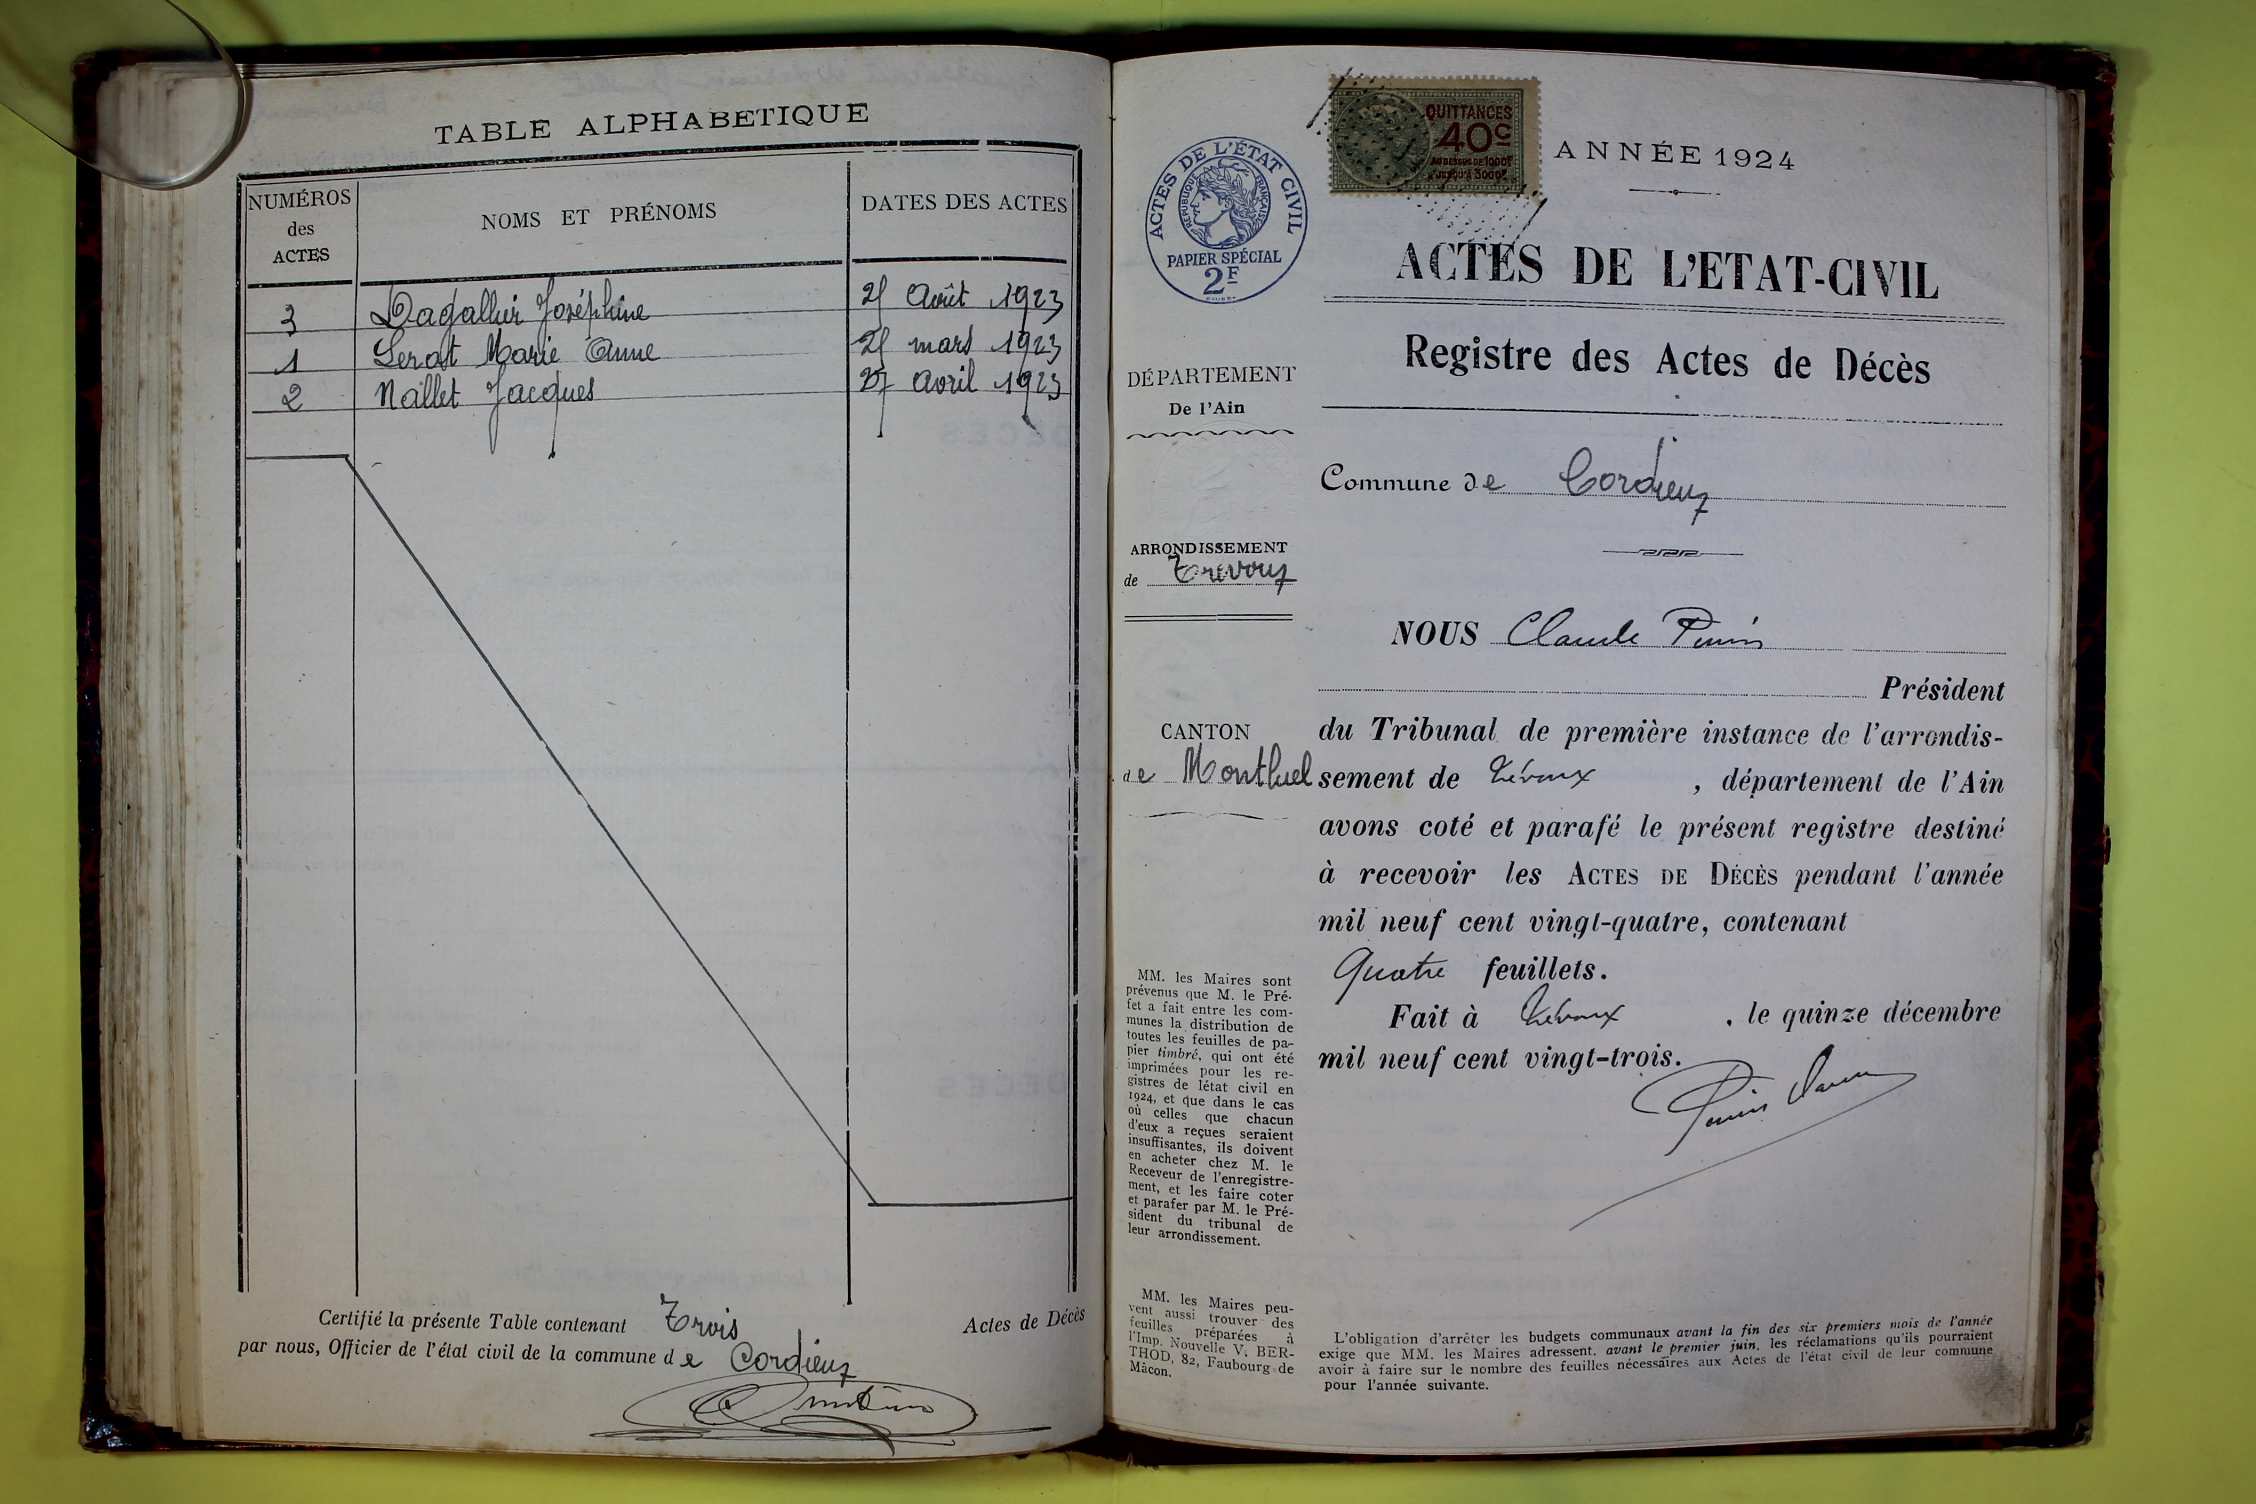 TABLE ALPHABETIQUE
NUMÉROS
des
ACTES
NOMS ET PRÉNOMS
DATES DES ACTES
3 Dagallier Joséphine 25 Août 1923
1 Marie Anne 25 mars 1923
2 Nallet Jacques 27 Avril 1923
Certifié la présente Table contenant Trois Actes de Décès
par nous, Officier de l'état civil de la commune de Cordieux
ACTES DE L'ÉTAT CIVIL
RÉPUBLIQUE FRANÇAISE
PAPIER SPÉCIAL
2F
QUITTANCES
40c
AU DESSUS DE 1000F
JUSQU'À 3000F
ANNÉE 1924
ACTES DE L'ETAT-CIVIL
Registre des Actes de Décès
DÉPARTEMENT
De l'Ain
Commune de Cordieux
ARRONDISSEMENT
de Trévoux
NOUS Claude
Président
CANTON
de Montluel
du Tribunal de première instance de l'arrondis-
sement de Trévoux, département de l'Ain
avons coté et parafé le présent registre destiné
à recevoir les ACTES DE DÉCÈS pendant l'année
mil neuf cent vingt-quatre, contenant
Quatre feuillets.
Fait à Trévoux, le quinze décembre
mil neuf cent vingt-trois.
MM. les Maires sont
prévenus que M. le Pré-
fet a fait entre les com-
munes la distribution de
toutes les feuilles de pa-
pier timbré, qui ont été
imprimées pour les re-
gistres de létat civil en
1924, et que dans le cas
où celles que chacun
d'eux a reçues seraient
insuffisantes, ils doivent
en acheter chez M. le
Receveur de l'enregistre-
ment, et les faire coter
et parafer par M. le Pré-
sident du tribunal de
leur arrondissement.
MM. les Maires peu-
vent aussi trouver des
feuilles préparées à
l'Imp. Nouvelle V. BER-
THOD, 82, Faubourg de
Mâcon.
L'obligation d'arrêter les budgets communaux avant la fin des six premiers mois de l'année
exige que MM. les Maires adressent, avant le premier juin, les réclamations qu'ils pourraient
avoir à faire sur le nombre des feuilles nécessaires aux Actes de l'état civil de leur commune
pour l'année suivante.